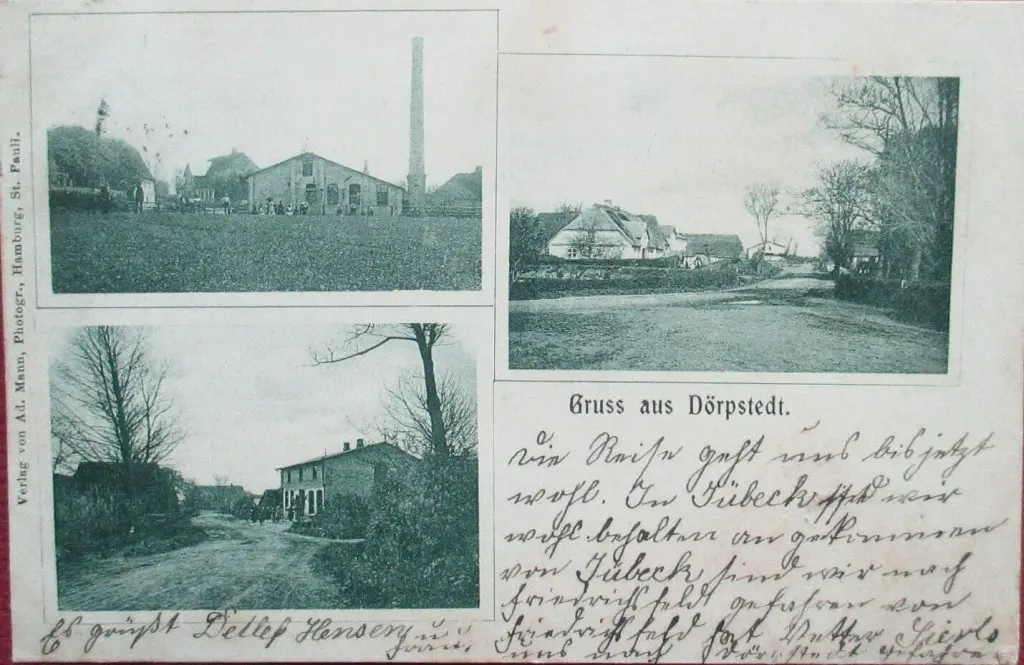 Verlag von Ad. Mann, Photogr., Hamburg, St. Pauli.
Gruss aus Dörpstedt.
Die Reise geht uns bisjetzt
wohl. In Jübeck sind wir
wohl behalten an gekommen
von Jübeck sind wir nach
Friedrichsfeldt gefahren von
Friedrichsfeld hat Vetter
uns nach Dörpstedt gefahren.
Es grüßt Detlef Hensen u.
Frau.